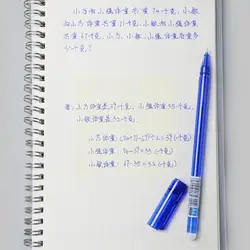 小方和小强体重共重74千克，小敏
和小方体重共重71千克，小敏和小强体重
共重67千克，小方、小敏、小强体重各重多
少千克？
答：小方体重是39千克，小强体重35千克，
小敏体重是32千克。
小方体重：(74+71-67)÷2=39(千克)
小强体重：74-39=35(千克)
小敏体重：67-35=32(千克)